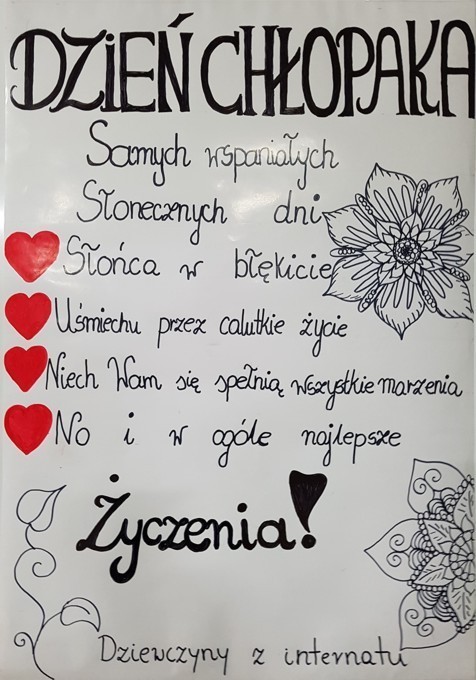 DZIEŃ CHŁOPAKA
Samych wspaniałych
Słonecznych dni
Słońca w błękicie
Uśmiechu przez calutkie życie
Niech Wam się spełnią wszystkie marzenia
No i w ogóle najlepsze
Życzenia!
Dziewczyny z internatu